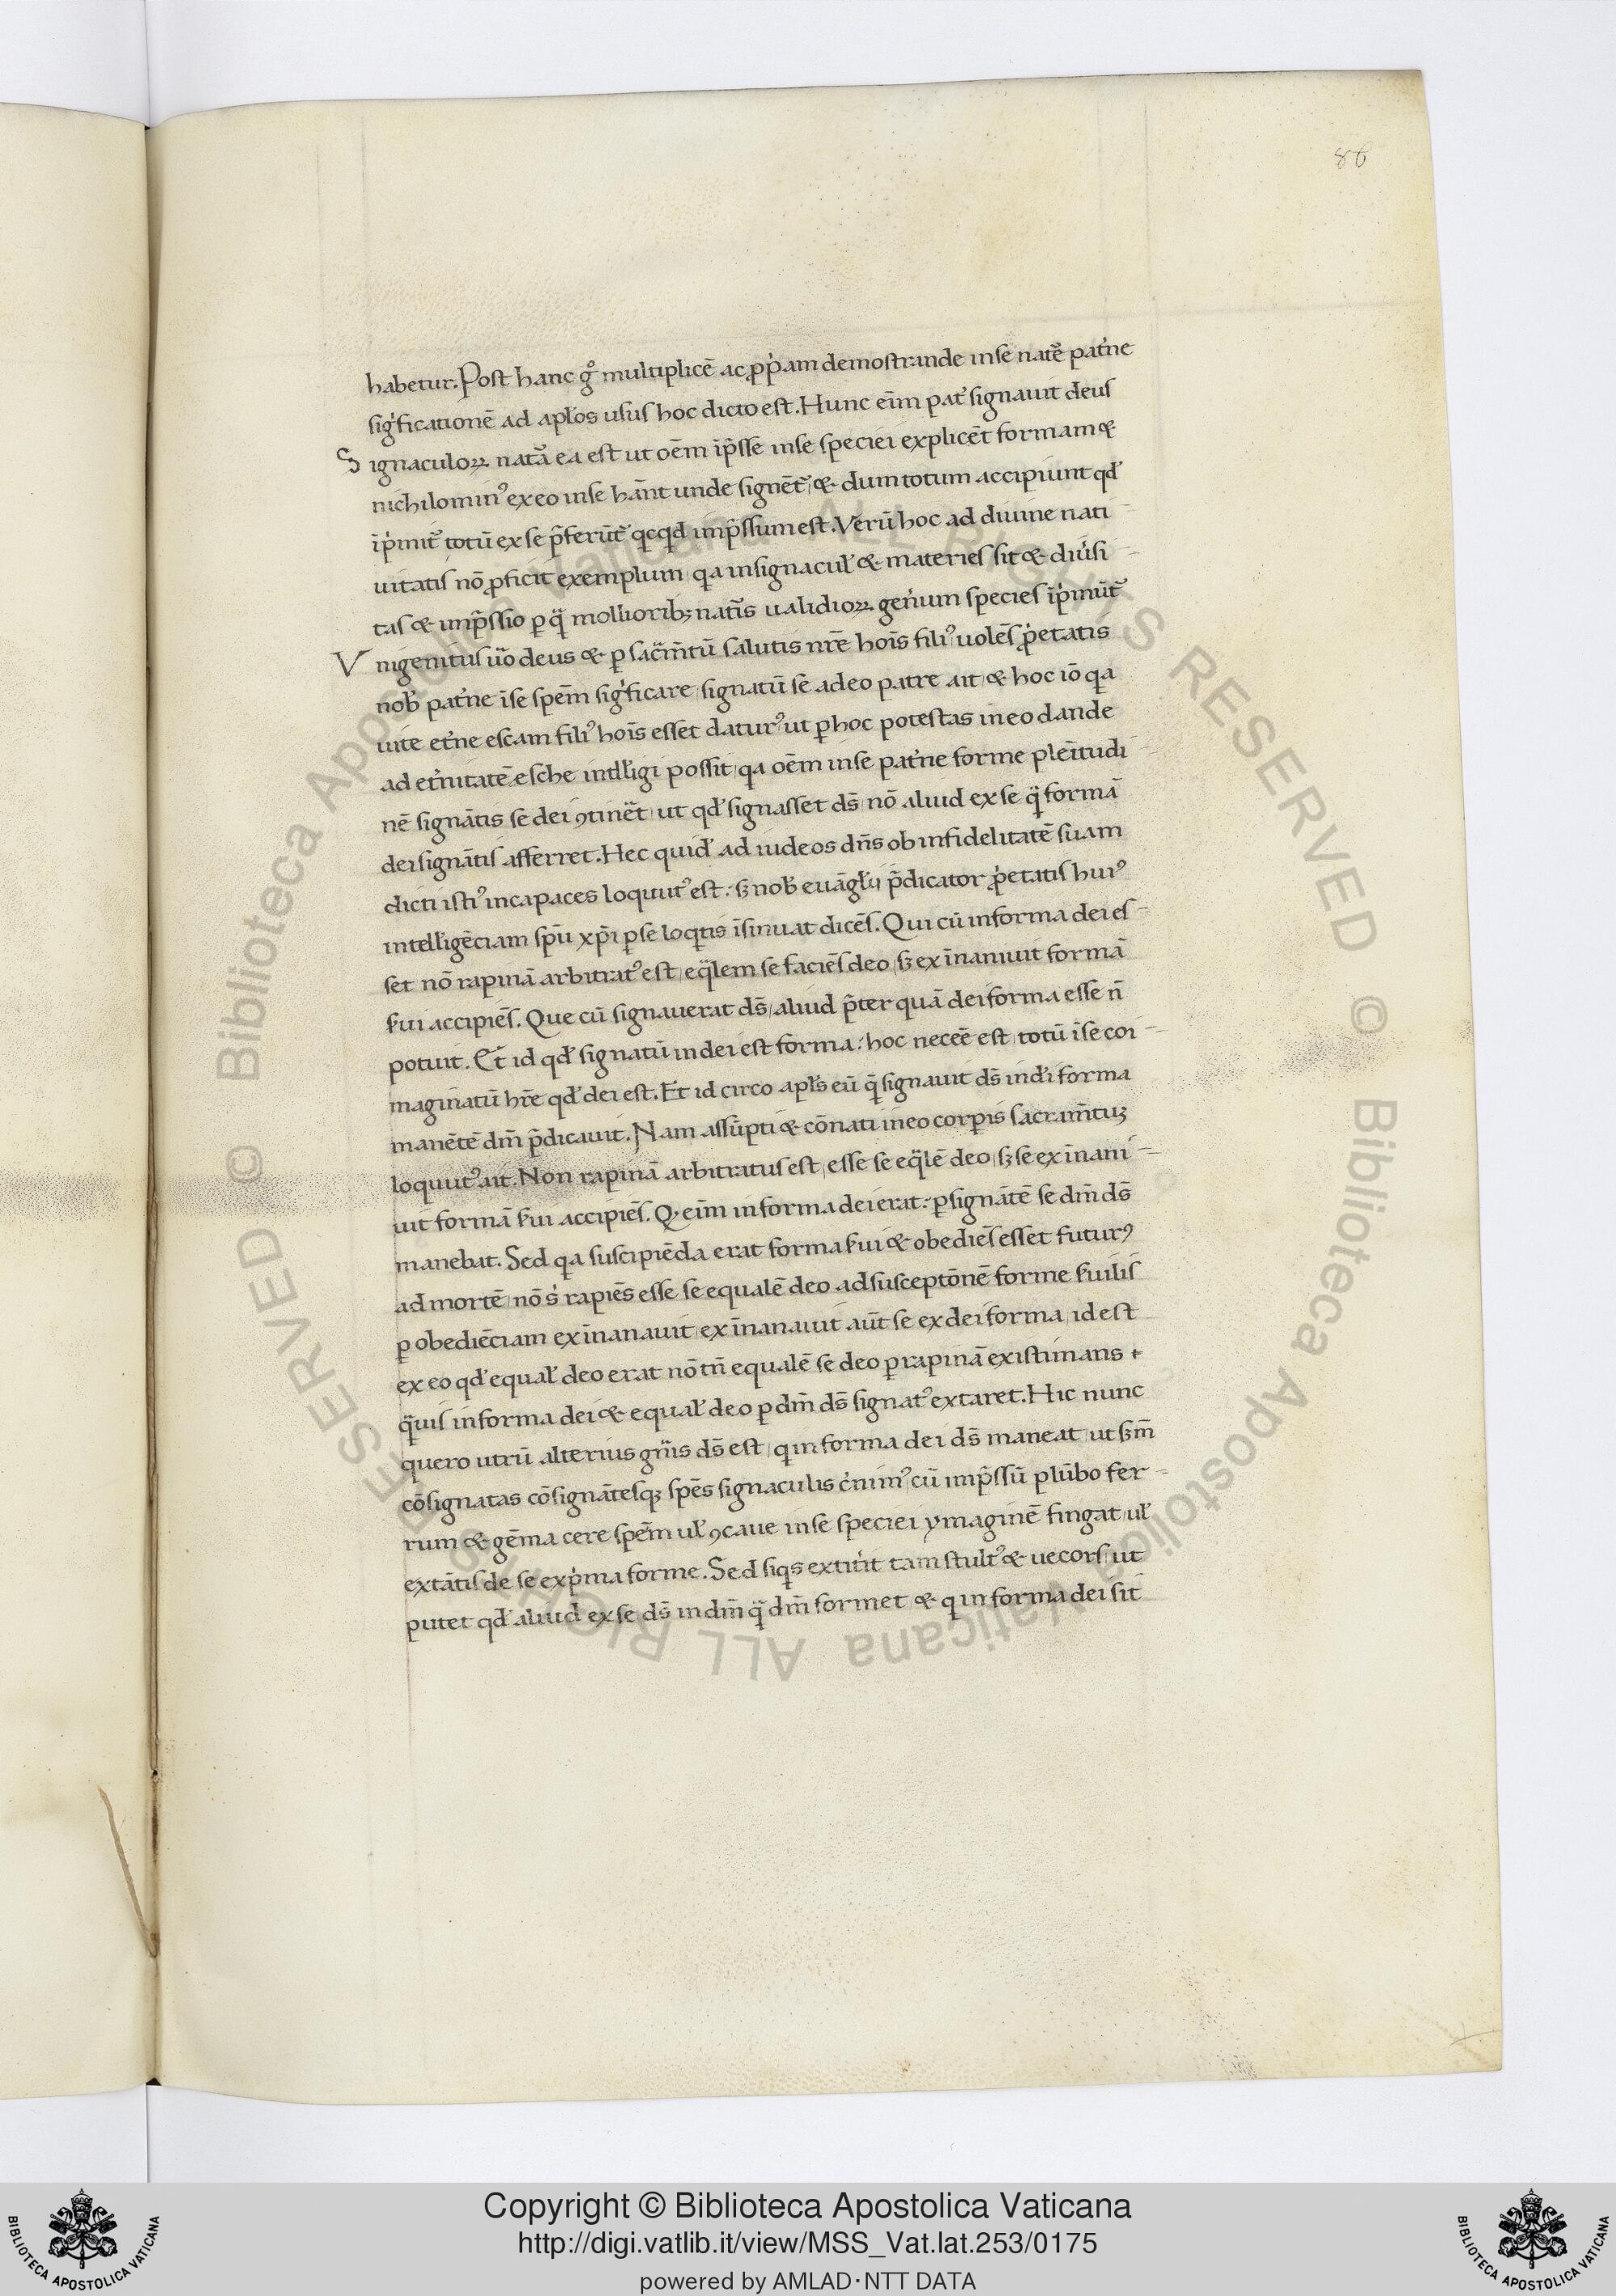 86
habetur. Post hanc gͦ multiplicē ac ꝓp̍am demostrande inse natē pat̍ne
sig̍ficationē ad apl̓os usus hoc dicto est. Hunc eīm pat̍ signauit deus
Signaculoꝝ natā ea est ut oēm īp̄sse inse speciei explicēt formam &
nichilominꝰ ex eo inse hānt unde signēt̄ & dum totum accipiunt qd̓
īp̍mit̄ totū ex se p̄ferūt̄ qcqd imp̄ssum est. Verū hoc ad diuine nati
uitatis nō ꝓficit exemplum qa insignacul̓ & materies sit & diu̍si
tas & imp̄ssio ꝑ q̄ mollioribꝫ nat̄s ualidioꝝ gen̍um species īp̍mūt̄
Vnigenitus ūo deus & ꝑ sac̄m̄tū salutis nr̄e hoīs filiꝰ uolēs ꝓp̍etatis
nob̓ pat̍ne īse spēm sig̍ficare signatū se adeo patre ait & hoc iō qa
uite et̍ne escam filiꝰ hoīs esset daturꝰ ut ꝑ hoc potestas in eo dande
ad et̍nitatē esche intll̓igi possit qa oēm inse pat̍ne forme pleītudi
nē signātis se dei ꝯtinēt ut qd̓ signasset ds̄ nō aliud ex se q̄ formā
dei signātis afferret. Hec quid̓ ad iudeos dn̄s ob infidelitatē suam
dicti istiꝰ incapaces loquutꝰ est: sꝫ nob̓ euāgl̓ii p̄dicator ꝓp̍etatis huiꝰ
intell̓igēciam sp̄u xp̄i ꝑ se loqtis īsinuat dicēs. Qui cū in forma dei es
set nō rapinā arbitratꝰ est eq̄lem se faciēs deo sꝫ exīnaniuit formā
s̓ui accipiēs. Que cū signauerat ds̄ aliud p̄ter quā dei forma esse n̄
potuit. Et id qd̓ signatū in dei est forma: hoc neceē est totū īse coi
maginatū hr̄e qd̓ dei est. Et id circo apl̓s eū q̄ signauit ds̄ in d̓i forma
manētē dm̄ p̄dicauit. Nam assūpti & cōnati in eo corꝑis sacram̄tuꝫ
loquutꝰ ait. Non rapinā arbitratus est esse se eq̄lē deo sꝫ se ex īnani
uit formā s̓ui accipiēs. Q, eīm in forma dei erat: ꝑ signātē se dm̄ ds̄
manebat. Sed qa suscipiēda erat forma s̓ui & obediēs esset futurꝰ
ad mortē nō s̍ rapiēs esse se equalē deo ad susceptōnē forme s̓uilis
ꝑ obediēciam ex īnanauit ex īnanauit aūt se ex dei forma id est
ex eo qd̓ equal̓ deo erat nō tn̄ equalē se deo ꝑ rapinā existimans
q̄uis in forma dei & equal̓ deo ꝑ dm̄ ds̄ signatꝰ extaret. Hic nunc
quero utrū alterius gn̄is ds̄ est q in forma dei ds̄ maneat ut sꝫm̄
cōsignatas cōsignātesqꝫ spēs signaculis c̍nimꝰ cū imp̄ssū plūbo fer
rum & gēma cere spēm ul̓ ꝯcaue inse speciei ymaginē fingat ul̓
extātis de se exp̍ma forme. Sed siqs extit̍it tam stultꝰ & uecors ut
putet qd̓ aliud ex se ds̄ in dm̄ q̄ dm̄ formet & q in forma dei sit
Copyright © Biblioteca Apostolica Vaticana
http://digi.vatlib.it/view/MSS_Vat.lat.253/0175
powered by AMLAD·NTT DATA